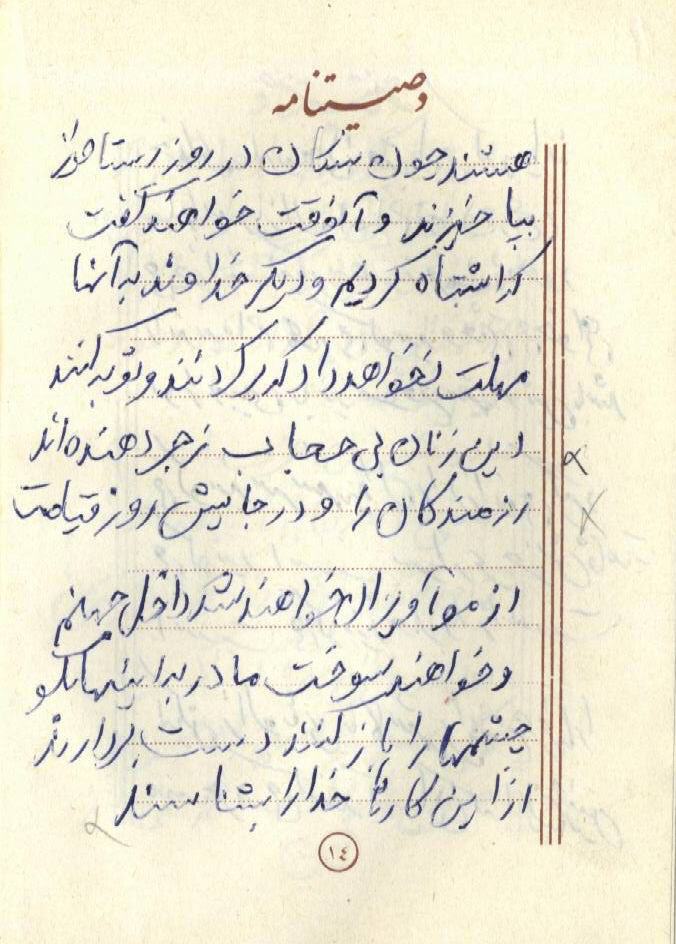 وصیتنامه
هستند چون سگان در روز رستاخیز
بپا خیزند و آنوقت خواهند گفت
که اشتباه کردیم و دیگر خداوند به آنها
مهلت نخواهد داد که برگردنند و توبه کنند
این زنان بی حجاب زجر دهنده‌اند
رزمندگان را و در جایش روز قیامت
از مو آویزان خواهند شد داخل جهنم
و خواهند سوخت مادر به اینها بگو
چشمها را باز کنند دست بردارند
از این کارها خدا را بشناسند
١٤